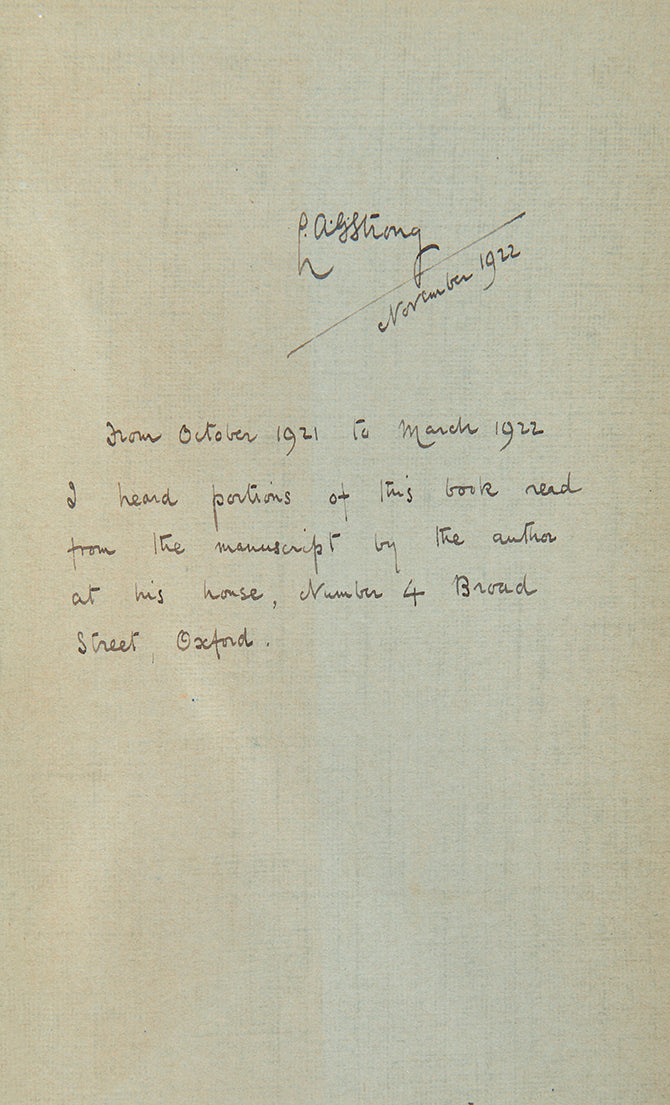 L.A.G. Strong
November 1922
From October 1921 to March 1922
I heard portions of this book read
from the manuscript by the author
at his house, Number 4 Broad
Street, Oxford.